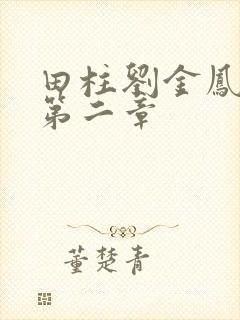 田柱劉金鳳
第二章
董楚青